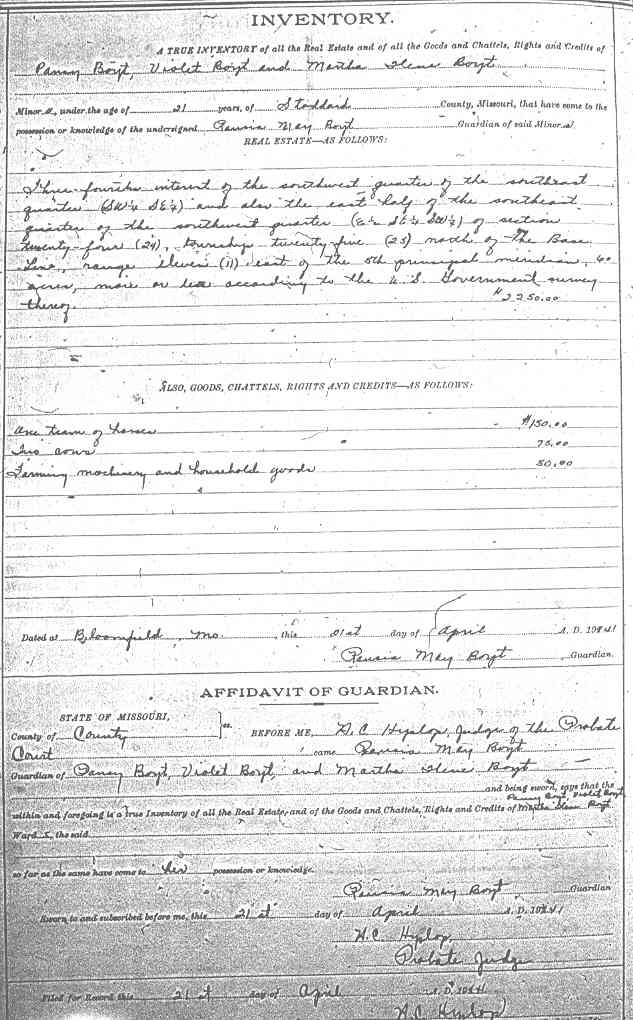 INVENTORY.
A TRUE INVENTORY of all the Real Estate and of all the Goods and Chattels, Rights and Credits of
Pansy Boyt, Violet Boyt and Martha Ilene Boyt
Minor s, under the age of 21 years, of Stoddard County, Missouri, that have come to the
possession or knowledge of the undersigned May Boyt Guardian of said Minor s.
REAL ESTATE—AS FOLLOWS:
Three-fourths interest of the southwest quarter of the southeast
quarter (SW¼ SE¼) and also the east half of the southeast
quarter of the southwest quarter (E½ SE¼ SW¼) of section
twenty-four (24), township twenty five (25) north of the Base
Line, range eleven (11) east of the 5th principal meridian, 60
acres, more or less according to the U.S. Government survey
thereof. $2250.00
ALSO, GOODS, CHATTELS, RIGHTS AND CREDITS—AS FOLLOWS:
One team of horses $150.00
Two cows 75.00
Farming machinery and household goods 50.00
Dated at Bloomfield, Mo. , this 21st day of April A. D. 1941
May Boyt Guardian.
AFFIDAVIT OF GUARDIAN.
STATE OF MISSOURI,
County of County } ss. BEFORE ME, H.C. Judge of the Probate
Court came May Boyt
Guardian of Pansy Boyt, Violet Boyt, and Martha Ilene Boyt
and being sworn, says that the
Pansy Boyt, Violet Boyt
within and foregoing is a True Inventory of all the Real Estate, and of the Goods and Chattels, Rights and Credits of Martha Ilene Boyt
Ward s, the said
so far as the same have come to her possession or knowledge.
May Boyt Guardian
Sworn to and subscribed before me, this 21st day of April A. D. 1941
H.C.
Probate Judge
Filed for Record this 21st day of April A. D. 1941
H.C.